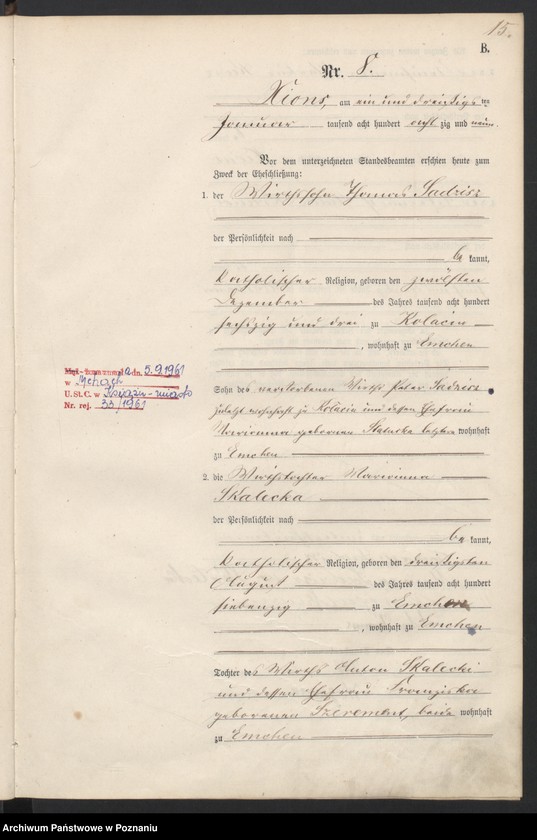 15.
B.
Nr. 8.
Xions, am ein und dreißigsten
Januar tausend acht hundert acht zig und neun.
Vor dem unterzeichneten Standesbeamten erschien heute zum
Zweck der Eheschließung:
1. der Wirthssohn Thomas Sadzisz
der Persönlichkeit nach
be kannt,
katholischer Religion, geboren den zwölften
Dezember des Jahres tausend acht hundert
sechszig und drei zu Kolacin
, wohnhaft zu Emchen
Sohn des verstorbenen Wirths Peter Sadzisz
zuletzt wohnhaft zu Kolacin und dessen Ehefrau
Marianna geborenen wohnhaft
zu Emchen
2. die Wirthstochter Marianna
Skalecka
der Persönlichkeit nach
be kannt,
katholischer Religion, geboren den dreißigsten
August des Jahres tausend acht hundert
siebenzig zu Emchen
, wohnhaft zu Emchen
Tochter des Wirths Anton Skalecki
und dessen Ehefrau Franziska
geborenen Szerement, beide wohnhaft
zu Emchen
dn. 5.9.1961
w Mchach
U.St.C. w Książ-miasto
Nr. rej. 33/1961
Archiwum Państwowe w Poznaniu